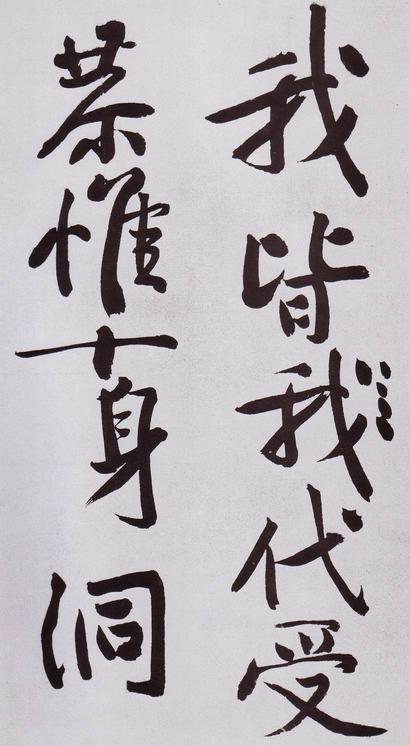 我皆我代受
恭惟十身洞